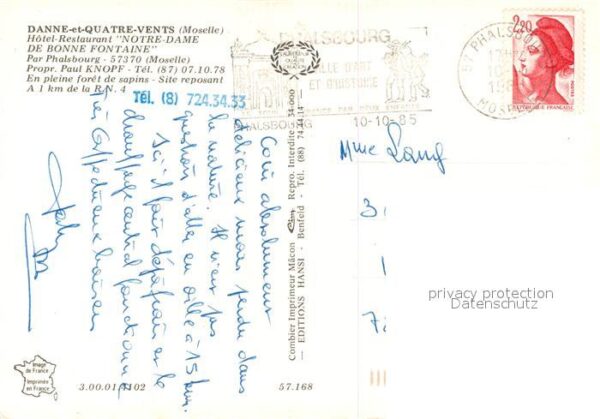 DANNE-et-QUATRE-VENTS (Moselle)
Hôtel-Restaurant "NOTRE-DAME
DE BONNE FONTAINE"
Par Phalsbourg - 57370 (Moselle)
Propr. Paul KNOPF - Tél. (87) 07.10.78
En pleine forêt de sapins - Site reposant
A 1 km de la R.N. 4
Tél. (8) 724.34.33
PHALSBOURG
VILLE D'ART
ET D'HISTOIRE
PHALSBOURG
10-10-85
57 PHALSBOURG
MOSELLE
2,20
REPUBLIQUE FRANÇAISE
Coin absolument
délicieux mais perdu dans
la nature. Il n'est pas
question d'aller en ville à 15 km.
Ici il fait déjà frais et le
chauffage central fonctionne
Très affectueux baisers
Combier Imprimeur Mâcon
Repro. Interdite
EDITIONS HANSI - Benfeld - Tél. (88) 74.34.14
Mme Lang
3
1
7
privacy protection
Datenschutz
Image de France
Imprimée en France
3.00.01 1102
57.168